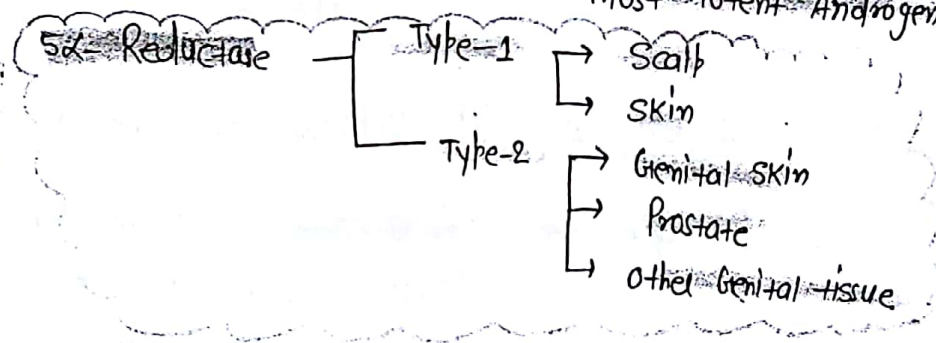 Most Potent Androgen
5α- Reductase
Type-1
Scalp
Skin
Type-2
Genital Skin
Prostate
Other Genital tissue